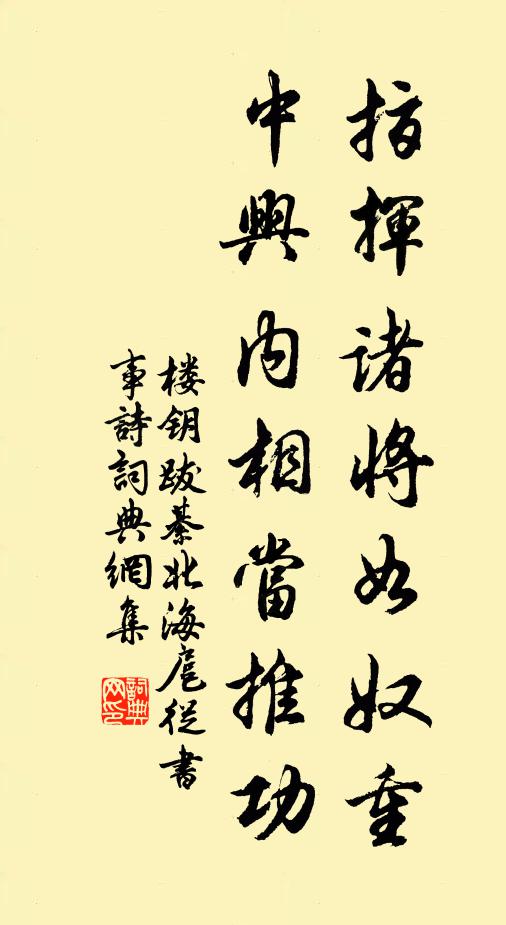 指揮諸將如奴重
中興內相當推功
楼钥跋綦北海扈從書
事詩詞典網集
詞典
网印